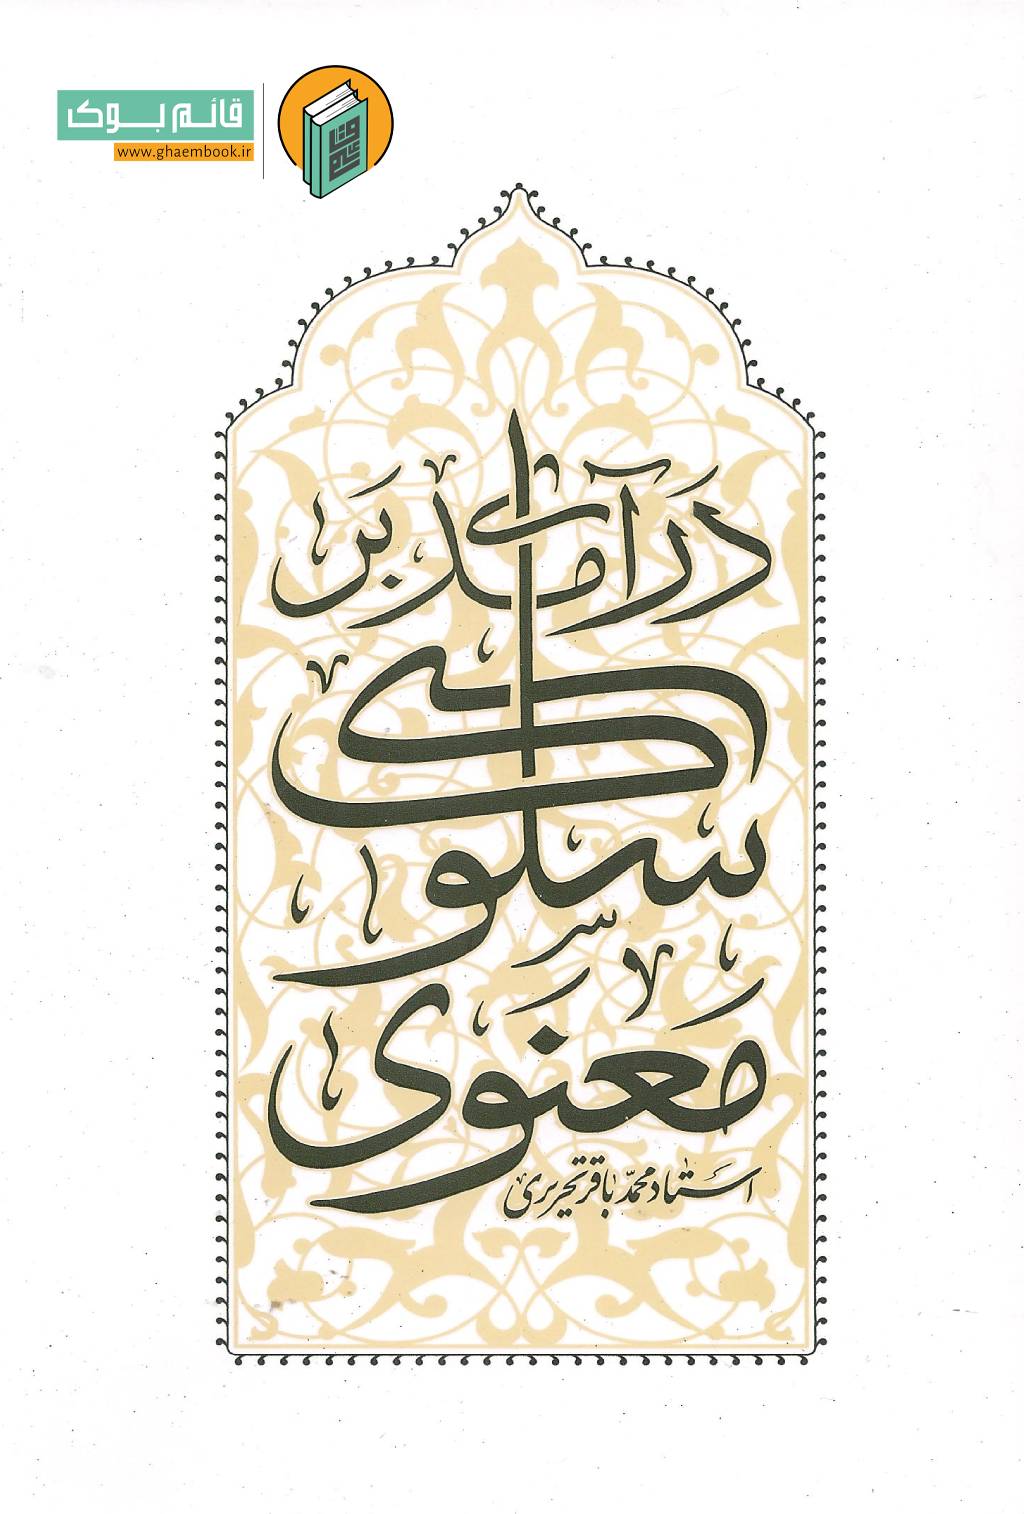 قائم بوک
www.ghaembook.ir
درآمدی بر
سلوک
معنوی
استاد محمد باقر تحریری